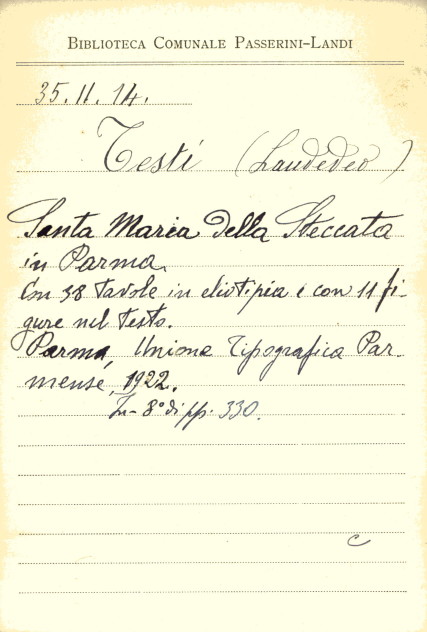 BIBLIOTECA COMUNALE PASSERINI-LANDI
35.11.14.
Testi (Laudedeo)
Santa Maria della Steccata
in Parma.
Con 38 tavole in eliotipia e con 11 fi-
gure nel testo.
Parma, Unione Tipografica Par-
mense, 1922.
In-8° di pp. 330.
c